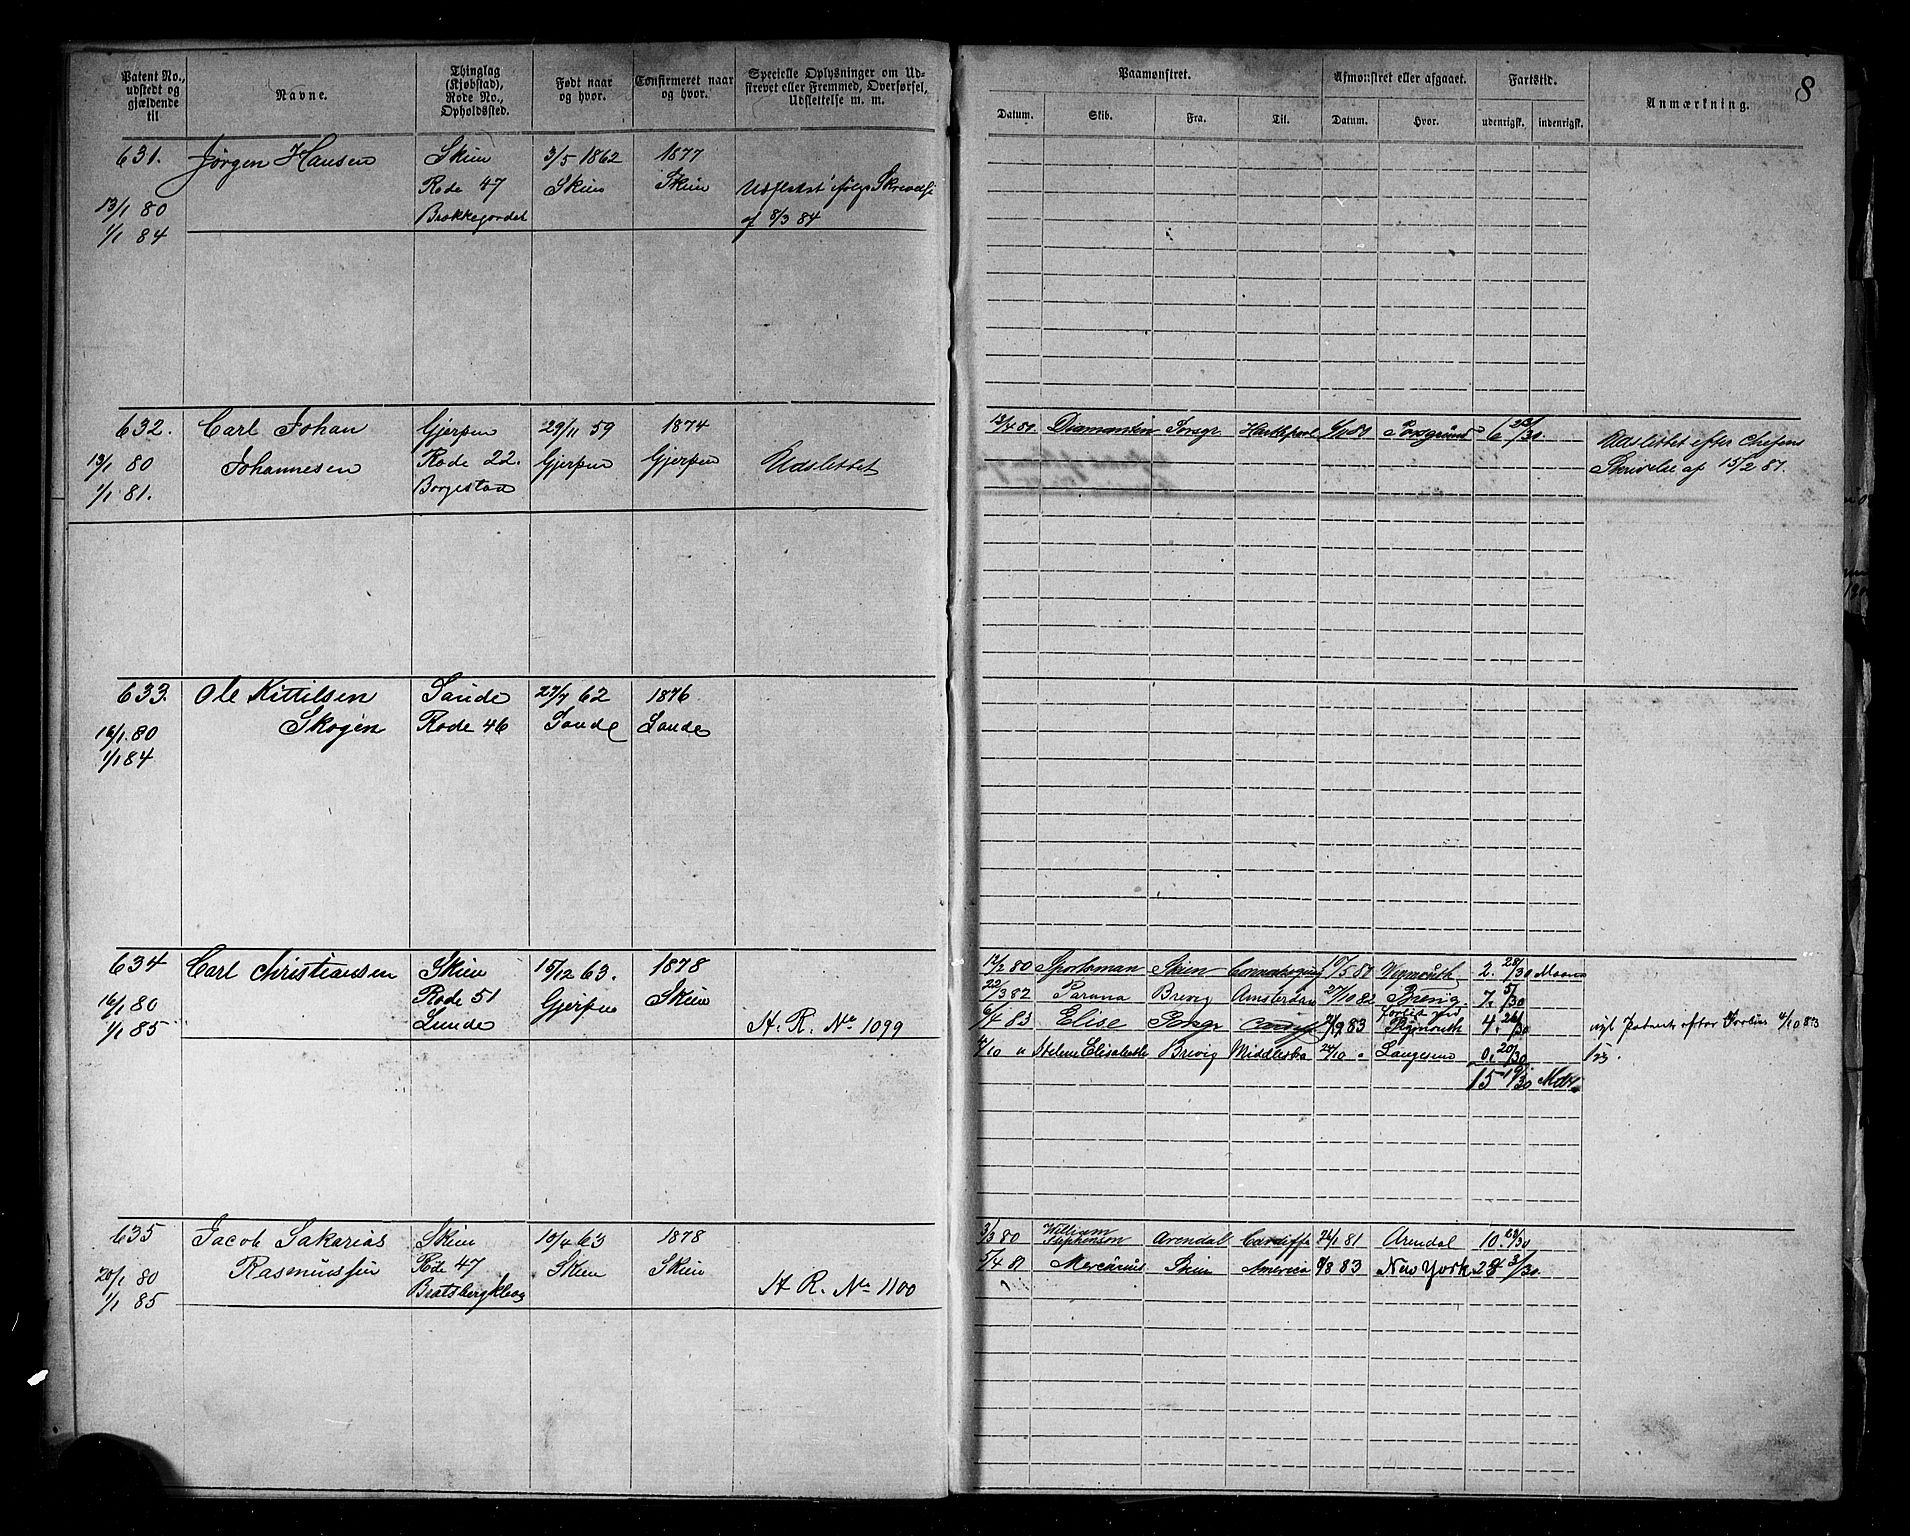 8
Patent No., udstedt og gjældende til
Navne.
Thinglag (Kjøbstad), Rode No., Opholdssted.
Født naar og hvor.
Confirmeret naar og hvor.
Specielle Oplysninger om Udskrevet eller Fremmed, Overførsel, Udslettelse m. m.
Paamønstret.
Afmønstret eller afgaaet.
Fartstid.
Anmærkning.
Datum. Skib. Fra. Til. Datum. Hvor. udenrigsk. indenrigsk.
631. Jørgen Hansen Skien 3/5 1862 1877
Rode 47 Skien Skien Udslettet ifølge
13/1 80 Brækkegjordet af 8/3 84
1/1 84
632. Carl Johan Gjerpen 29/11 59 1874 Diamanten Porsgr Porsgrund 6
13/1 80 Johannesen Rode 22. Gjerpen Gjerpen Udslettet Udslettet efter Chefens
1/1 81. Borgestad Skrivelse af 15/2 87.
633. Ole Kittilsen Saude 27/7 62 1876
16/1 80 Skogen Rode 46 Saude Saude
1/1 84
634 Carl Christiansen Skien 15/12 63. 1878 Sportsman Skien 2. 28/30
16/1 80 Rode 51 Gjerpen Skien 22/3 82 Parana Brevig Amsterdam 27/10 82 Brevig 7. 5/30
1/1 85 Lunde A. R. No 1099 6/4 83 Elise Porsgr Cardiff Plymouth 4. 26/30
4/10 " Helene Elisabeth Brevig 24/10 " Langesund 0. 20/30
15 19/30 Mdr.
635 Jacob Sakarias Skien 10/4 63 1878 3/3 80 William Stephenson Arendal Cardiff 24/1 81 Arendal 10.
20/1 80 Rasmussen Rode 47 Skien Skien 5/4 81 Mercurius Skien America 83 New York 28 3/30
1/1 85 Bratsbergkleva A R. No 1100